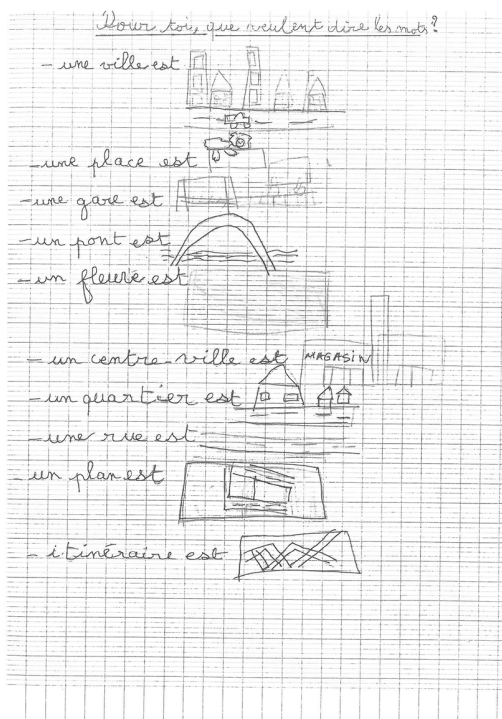 Pour toi, que veulent dire les mots?
- une ville est
- une place est
- une gare est
- un pont est
- un fleuve est
- un centre-ville est MAGASIN
- un quartier est
- une rue est
- un plan est
- itinéraire est